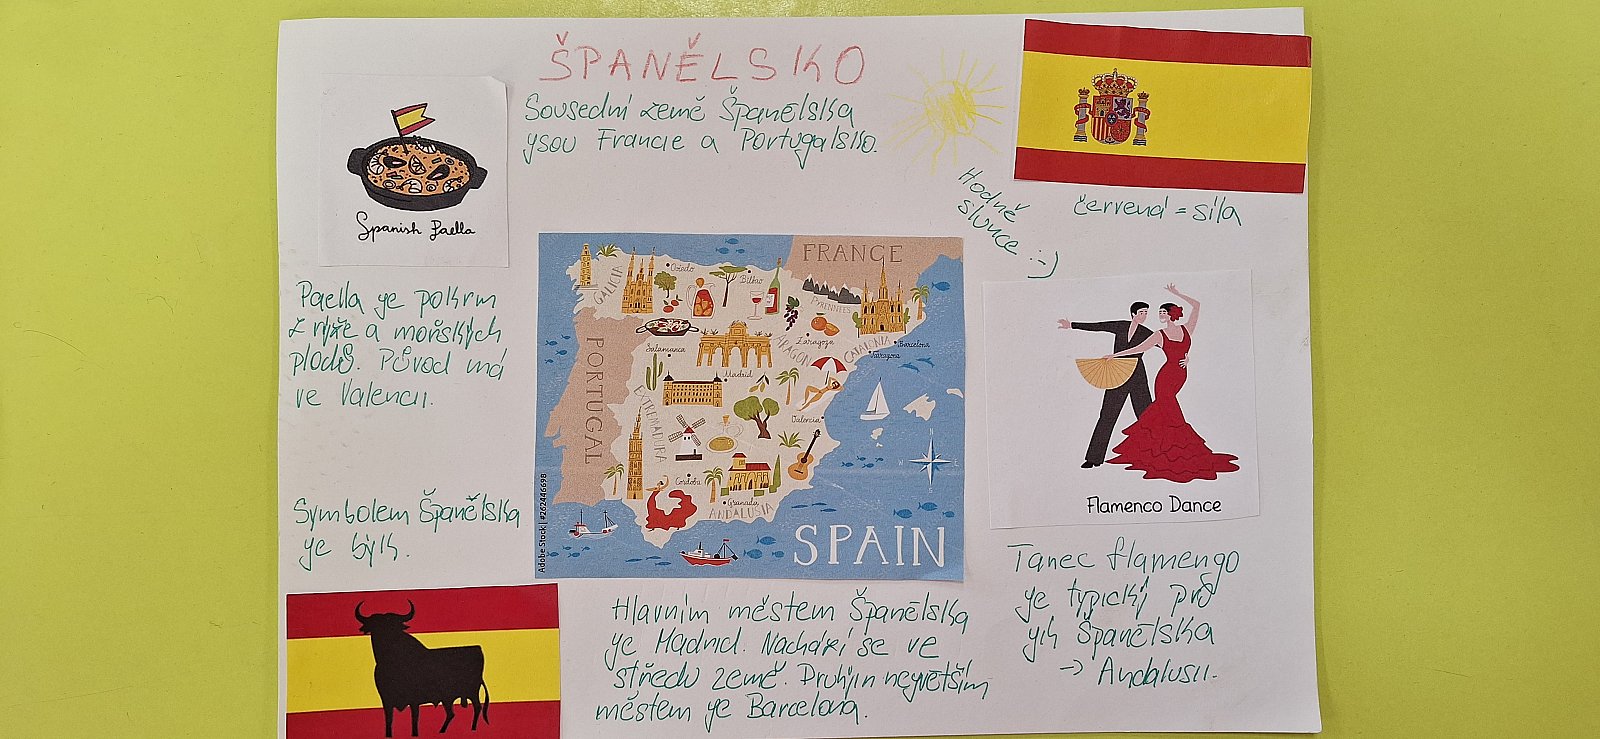 ŠPANĚLSKO
Sousední země Španělska
jsou Francie a Portugalsko.
Hodně
slunce :-)
červená = síla
Spanish Paella
Paella je pokrm
z rýže a mořských
plodů. Původ má
ve Valencii.
Symbolem Španělska
je býk.
FRANCE
PORTUGAL
SPAIN
GALICIA
Oviedo
Bilbao
PYRENNEES
ARAGON
Zaragoza
CATALONIA
Barcelona
Tarragona
Salamanca
Madrid
EXTREMADURA
Valencia
Cordoba
Granada
ANDALUSIA
N
W
E
S
Adobe Stock | #262446698
Flamenco Dance
Tanec flamengo
je typický pro
jih Španělska
-> Andalusii.
Hlavním městem Španělska
je Madrid. Nachází se ve
středu země. Druhým největším
městem je Barcelona.